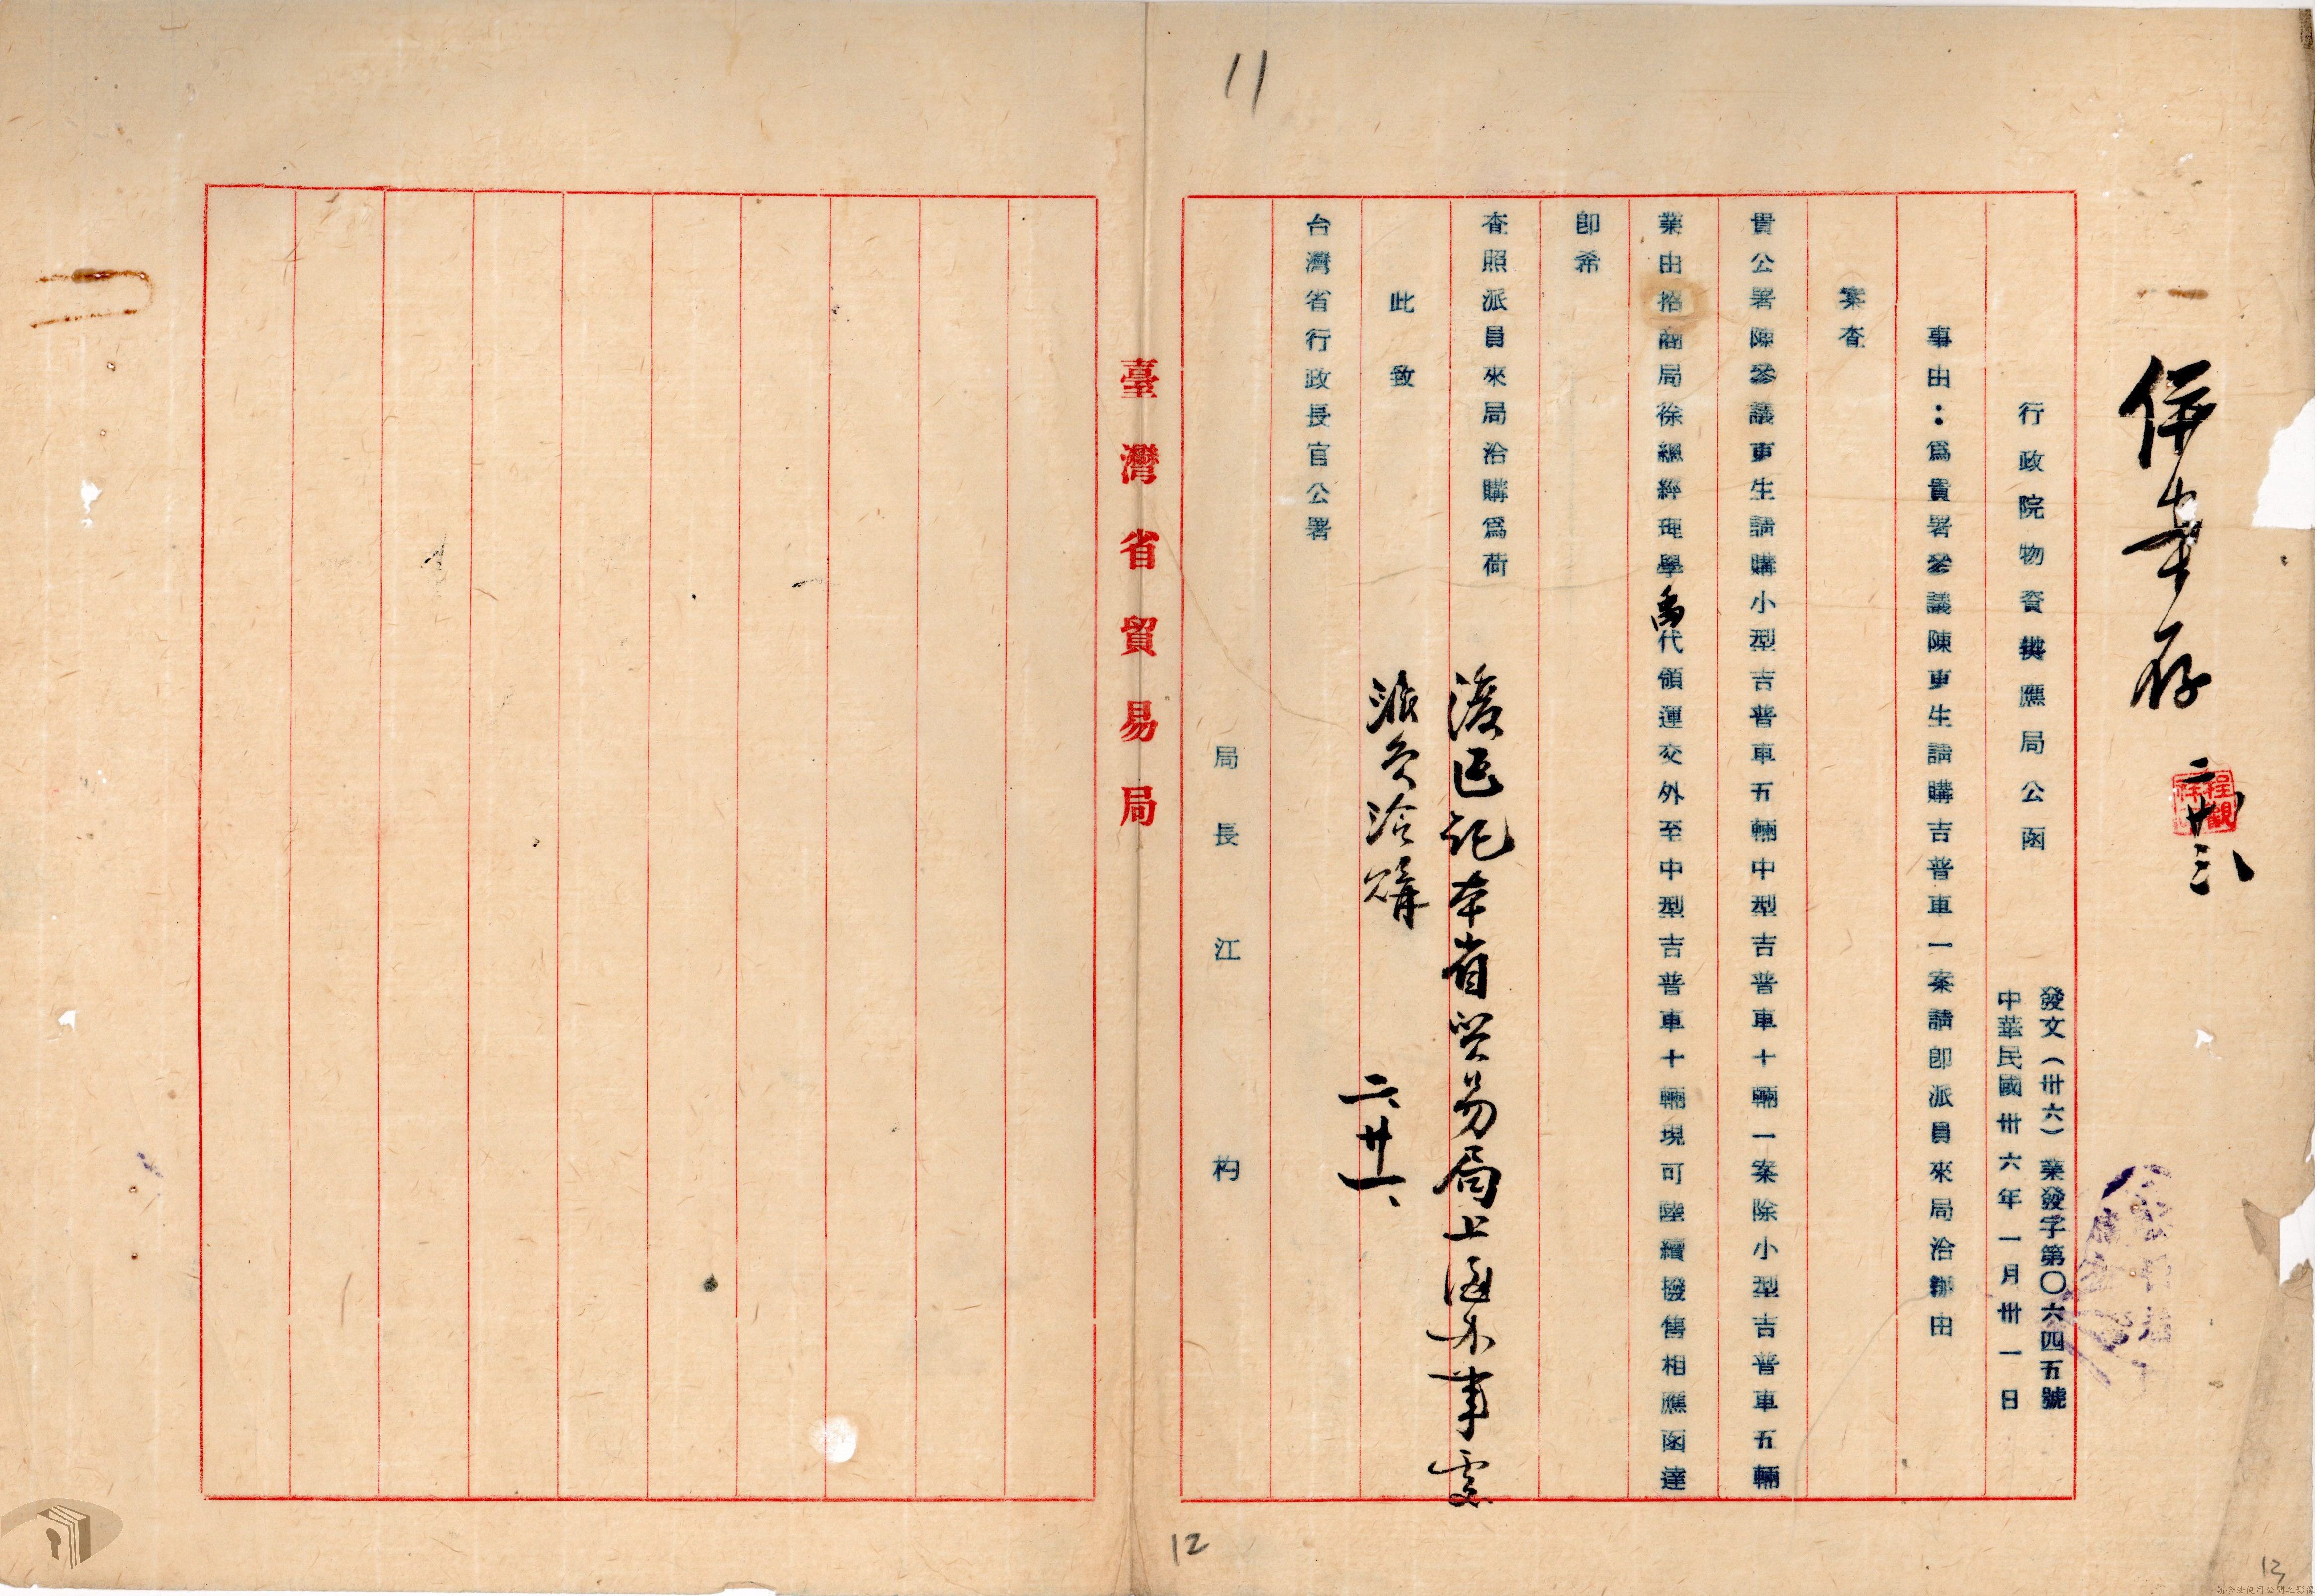 11
併案存
二廿三
行政院物資供應局公函
發文（卅六）業發字第〇六四五號
中華民國卅六年一月卅一日
事由：爲貴署參議陳更生請購吉普車一案請卽派員來局洽辦由
案查
貴公署陳參議更生請購小型吉普車五輛中型吉普車十輛一案除小型吉普車五輛
業由招商局徐總經理學禹代領運交外至中型吉普車十輛現可陸續撥售相應函達
卽希
查照派員來局洽購爲荷
此致
台灣省行政長官公署
局長江杓
復已託本省貿易局上海办事處
派員洽購
二、廿一、
臺灣省貿易局
12
13